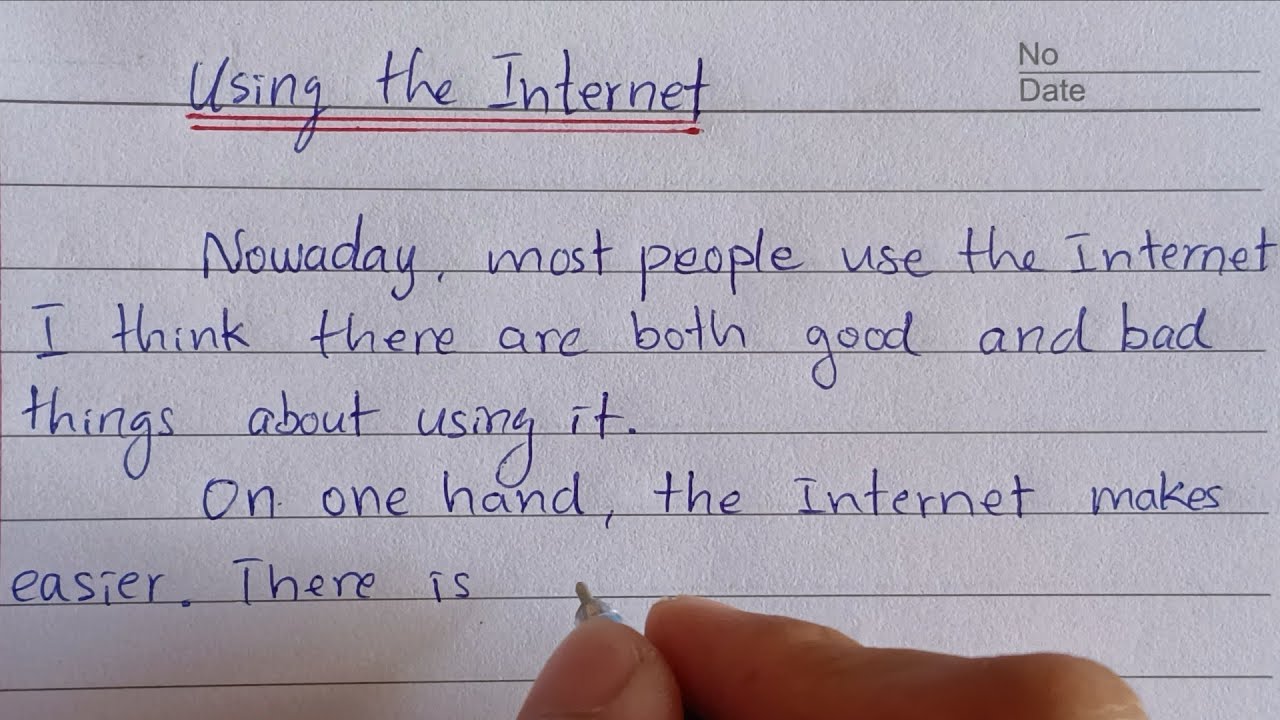 Using the Internet
No
Date
Nowaday, most people use the Internet
I think there are both good and bad
things about using it.
On one hand, the Internet makes
easier. There is